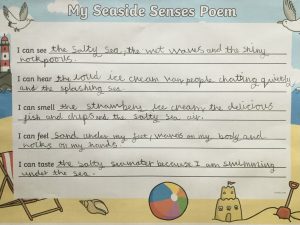 My Seaside Senses Poem
I can see the salty sea, the wet waves and the shiny
rockpools.
I can hear the loud ice cream van people chating quietly
and the splashing sea.
I can smell the strawberry ice cream, the delicious
fish and chips and the salty sea air.
I can feel sand under my feet, waves on my body and
rocks on my hands.
I can taste the salty seawater because I am swimming
under the sea.